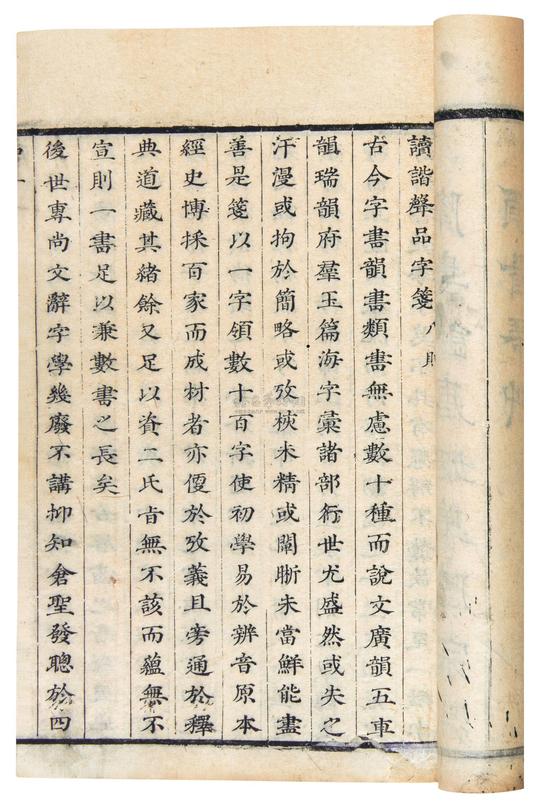 讀諧聲品字箋八則
古今字書韻書類書無慮數十種而說文廣韻五車
韻瑞韻府羣玉篇海字彙諸部行世尤盛然或失之
汗漫或拘於簡略或攷核未精或闡晰未當鮮能盡
善是箋以一字領數十百字使初學易於辨音原本
經史博採百家而成材者亦優於攷義且旁通於釋
典道藏其緒餘又足以資二氏旨無不該而蘊無不
宣則一書足以兼數書之長矣
後世專尚文辭字學幾廢不講抑知倉聖發聰於四